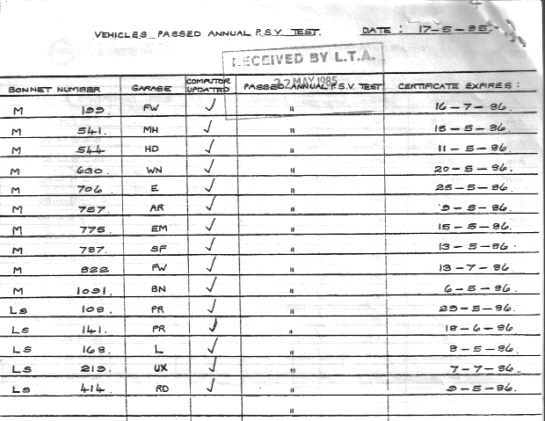 VEHICLES PASSED ANNUAL P.S.V TEST. DATE: 17-5-85.
RECEIVED BY L.T.A.
22 MAY 1985
BONNET NUMBER GARAGE COMPUTOR UPDATED PASSED ANNUAL P.S.V TEST CERTIFICATE EXPIRES:
M 199. FW ✓ " 16-7-86.
M 541. MH ✓ " 15-5-86.
M 544 HD ✓ " 11-5-86.
M 630. WN ✓ " 20-5-86.
M 706 E ✓ " 25-5-86.
M 757. AR ✓ " 9-5-86.
M 775 EM ✓ " 15-5-86.
M 787. SF ✓ " 13-5-86.
M 822 FW ✓ " 13-7-86.
M 1031. BN ✓ " 6-5-86.
LS 108. PR ✓ " 29-5-86.
LS 141. PR ✓ " 18-6-86.
LS 168. L ✓ " 8-5-86.
LS 213. UX ✓ " 7-7-86.
LS 414. RD ✓ " 9-5-86.
"